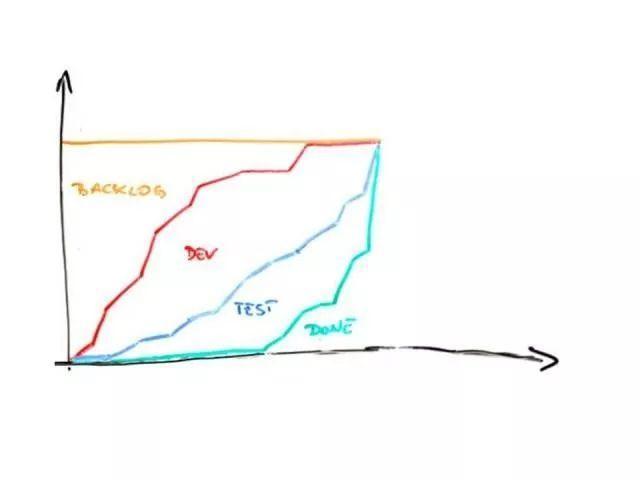 BACKLOG
DEV
TEST
DONE